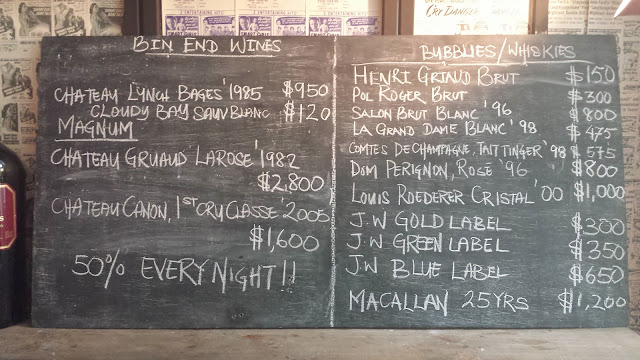 CRY DANGER
BIN END WINES
CHATEAU LYNCH BAGES '1985 $950
CLOUDY BAY SAUV BLANC $120
MAGNUM
CHATEAU GRUAUD LAROSE '1982
$2,800
CHATEAU CANON, 1ST CRU CLASSE '2005
$1,600
50% EVERY NIGHT!!
BUBBLIES/WHISKIES
HENRI GIRAUD BRUT $150
POL ROGER BRUT $300
SALON BRUT BLANC '96 $800
LA GRAND DAME BLANC '98 $475
COMTES DE CHAMPAGNE, TAITTINGER '98 $575
DOM PERIGNON, ROSE '96 $800
LOUIS ROEDERER CRISTAL '00 $1,000
J.W GOLD LABEL $300
J.W GREEN LABEL $350
JW BLUE LABEL $650
MACALLAN 25YRS $1,200